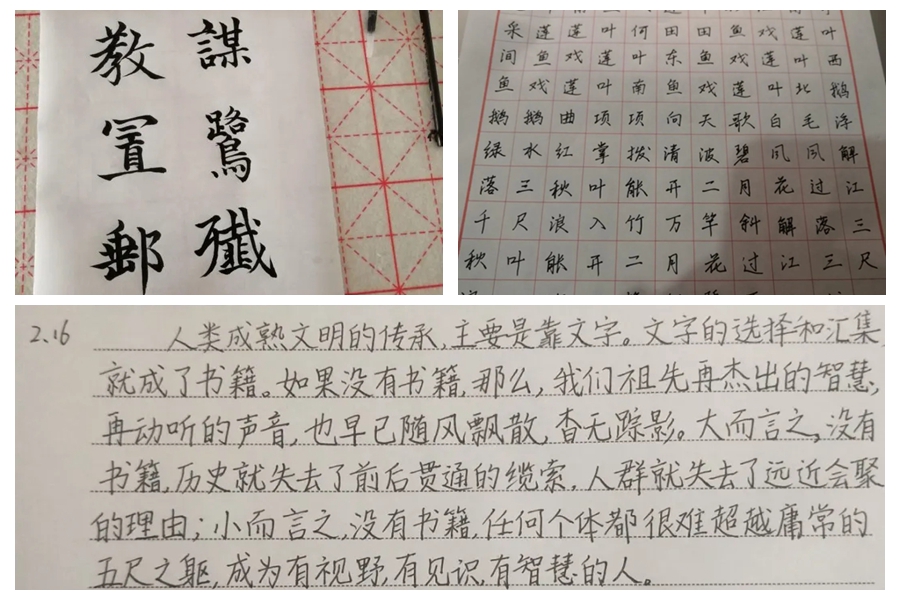 教謀
置鷺
郵殲
采莲莲叶何田田鱼戏莲叶
间鱼戏莲叶东鱼戏莲叶西
鱼戏莲叶南鱼戏莲叶北鹅
鹅鹅曲项项向天歌白毛浮
绿水红掌拨清波碧风风解
落三秋叶能开二月花过江
千尺浪入竹万竿斜解落三
秋叶能开二月花过江三尺
2.16
人类成熟文明的传承,主要是靠文字。文字的选择和汇集
就成了书籍。如果没有书籍,那么,我们祖先再杰出的智慧,
再动听的声音,也早已随风飘散,杳无踪影。大而言之,没有
书籍,历史就失去了前后贯通的缆索,人群就失去了远近会聚
的理由;小而言之,没有书籍,任何个体都很难超越庸常的
五尺之躯,成为有视野,有见识,有智慧的人。